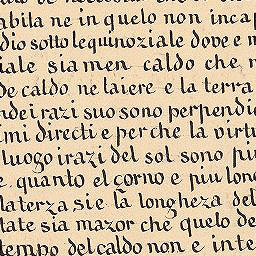 abila ne in quelo non incap
dio sotto lequinoziale dove e m
iale sia men caldo che n
de caldo ne laiere e la terra
ndei razi suo sono perpendic
imi directi e per che la virtu
luogo i razi del sol sono piu
e quanto el corno e piu lon
la terza sie la longheza del
tate sia mazor che quelo de
tempo del caldo non e inte